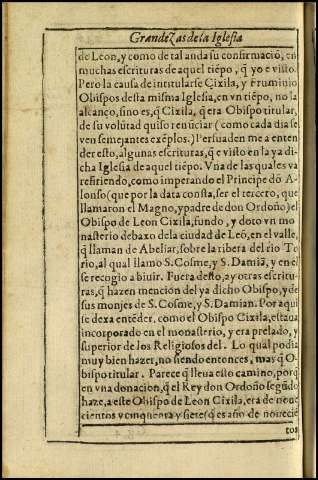 Grandezas de la Iglesia
de Leon, y como de tal anda su confirmaciõ, en
muchas escrituras de aquel tiẽpo, q̃ yo e visto.
Pero la causa de intitularse Cixila, y Fruminio
Obispos desta misma Iglesia, en vn tiẽpo, no la
alcanço, sino es, q̃ Cixila, q̃ era Obispo titular,
de su volũtad quiso renũciar (como cada dia se
ven semejantes exẽplos.) Persuaden me a enten
der esto, algunas escrituras, q̃ e visto en la ya di-
cha Iglesia de aquel tiẽpo. Vna de las quales va
refiriendo, como imperando el Principe dõ A-
lonso (que por la data consta, ser el tercero, que
llamaron el Magno, y padre de don Ordoño) el
Obispo de Leon Cixila, fundo, y doto vn mo
nasterio debaxo de la ciudad de Leõ, en el valle,
q̃ llaman de Abeliar, sobre la ribera del rio To
rio, al qual llamo S. Cosme, y S. Damiã, y en el
se recogio a biuir. Fuera desto, ay otras escritu-
ras, q̃ hazen mencion del ya dicho Obispo, y de
sus monjes de S. Cosme, y S. Damian. Por aqui
se dexa entẽder, como el Obispo Cixila, estaua
incorporado en el monasterio, y era prelado, y
superior de los Religiosos del. Lo qual podia
muy bien hazer, no siendo entonces, mas q̃ O-
bispo titular. Parece q̃ lleua esto camino, porq̃
en vna donacion, q̃ el Rey don Ordoño segũdo
haze, a este Obispo de Leon Cixila, era de noue
cientos y cinquenta y siete (q̃ es año de nouecie
tos